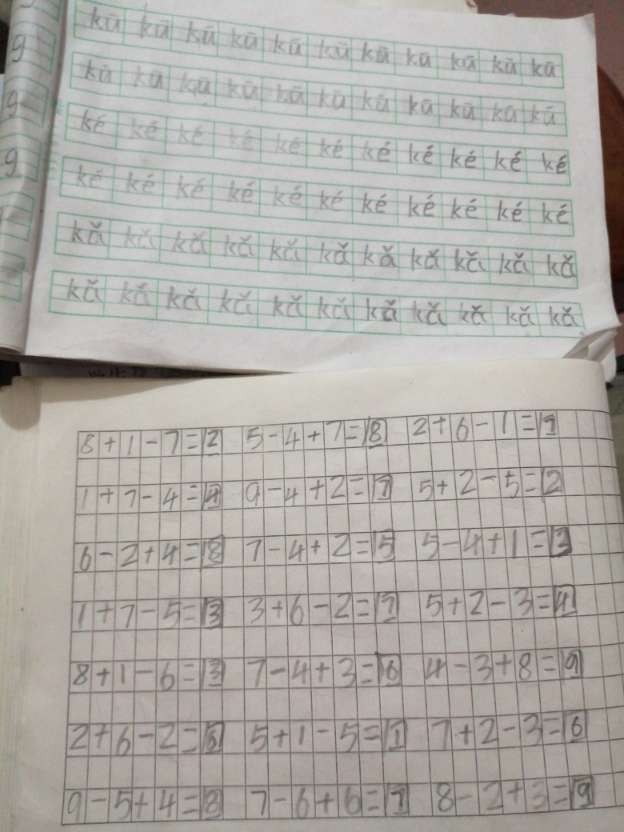 9
9
9
kū kū kū kū kū kū kū kū kū kū kū
kū kū kū kū kū kū kū kū kū kū kū
ké ké ké ké ké ké ké ké ké ké ké
ké ké ké ké ké ké ké ké ké ké ké
kǎ kǎ kǎ kǎ kǎ kǎ kǎ kǎ kǎ kǎ kǎ
kǎ kǎ kǎ kǎ kǎ kǎ kǎ kǎ kǎ kǎ kǎ
8+1-7=2 5-4+7=8 2+6-1=7
1+7-4=4 9-4+2=7 5+2-5=2
6-2+4=8 7-4+2=5 5-4+1=3
1+7-5=3 3+6-2=7 5+2-3=4
8+1-6=3 7-4+3=6 4-3+8=9
2+6-2=6 5+1-5=1 7+2-3=6
9-5+4=8 7-6+6=7 8-2+3=9